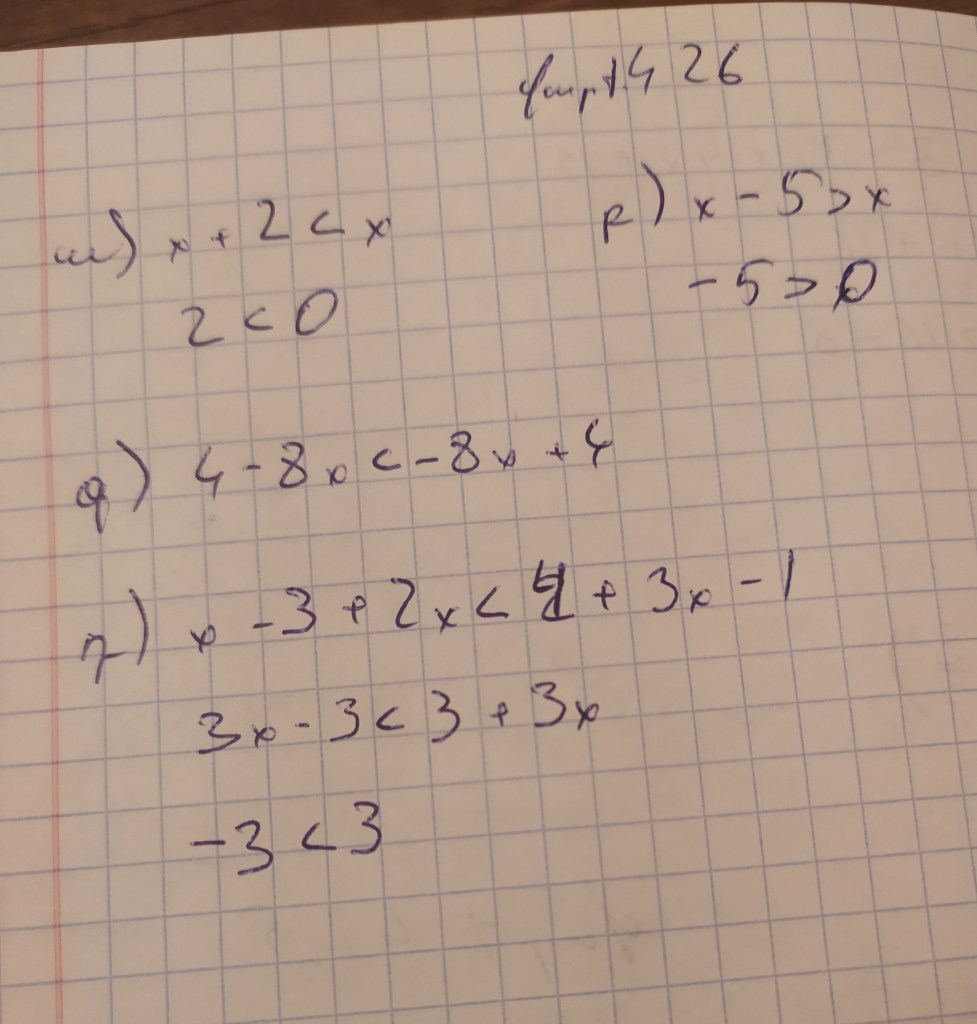 426
ա) x + 2 < x
2 < 0
բ) x - 5 > x
-5 > 0
գ) 4 - 8x < -8x + 4
դ) x - 3 + 2x < 4 + 3x - 1
3x - 3 < 3 + 3x
-3 < 3